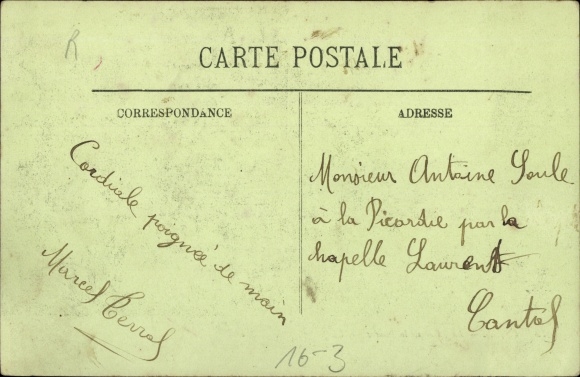 R
CARTE POSTALE
CORRESPONDANCE
Cordiale poignée de main
Marcel Terral
ADRESSE
Monsieur Antoine Soule
à la Picardie par la
chapelle Laurent
Cantal
16-3